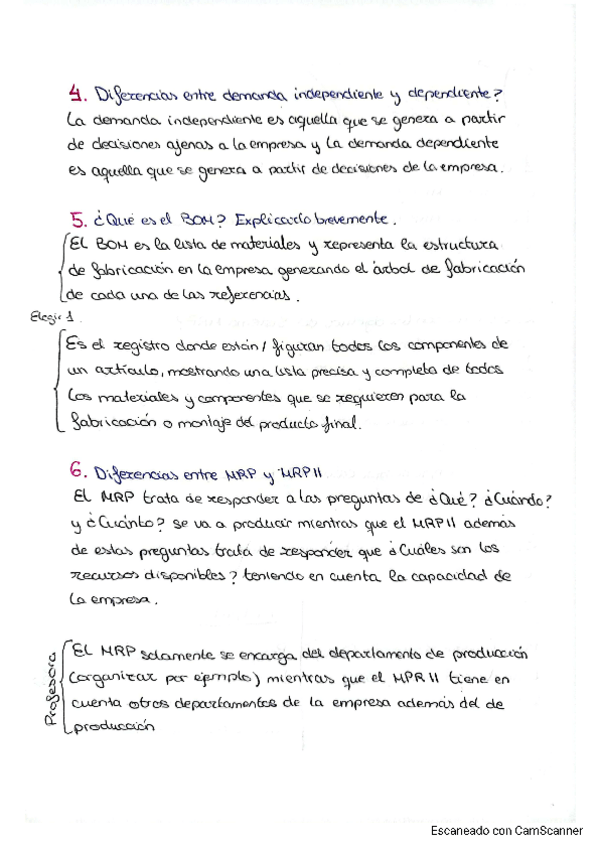 4. Diferencias entre demanda independiente y dependiente?
La demanda independiente es aquella que se genera a partir
de decisiones ajenas a la empresa y la demanda dependiente
es aquella que se genera a partir de decisiones de la empresa.
5. ¿Qué es el BOM? Explicarlo brevemente.
El BOM es la lista de materiales y representa la estructura
de fabricación en la empresa generando el árbol de fabricación
de cada una de las referencias.
Elegir 1.
Es el registro donde están / figuran todos los componentes de
un artículo, mostrando una lista precisa y completa de todos
los materiales y componentes que se requieren para la
fabricación o montaje del producto final.
6. Diferencias entre MRP y MRP II
El MRP trata de responder a las preguntas de ¿Qué? ¿Cuándo?
y ¿Cuánto? se va a producir mientras que el MRP II además
de estas preguntas trata de responder que ¿Cuáles son los
recursos disponibles? teniendo en cuenta la capacidad de
la empresa.
Profesora
El MRP solamente se encarga del departamento de producción
(organizar por ejemplo) mientras que el MPR II tiene en
cuenta otros departamentos de la empresa además del de
producción
Escaneado con CamScanner